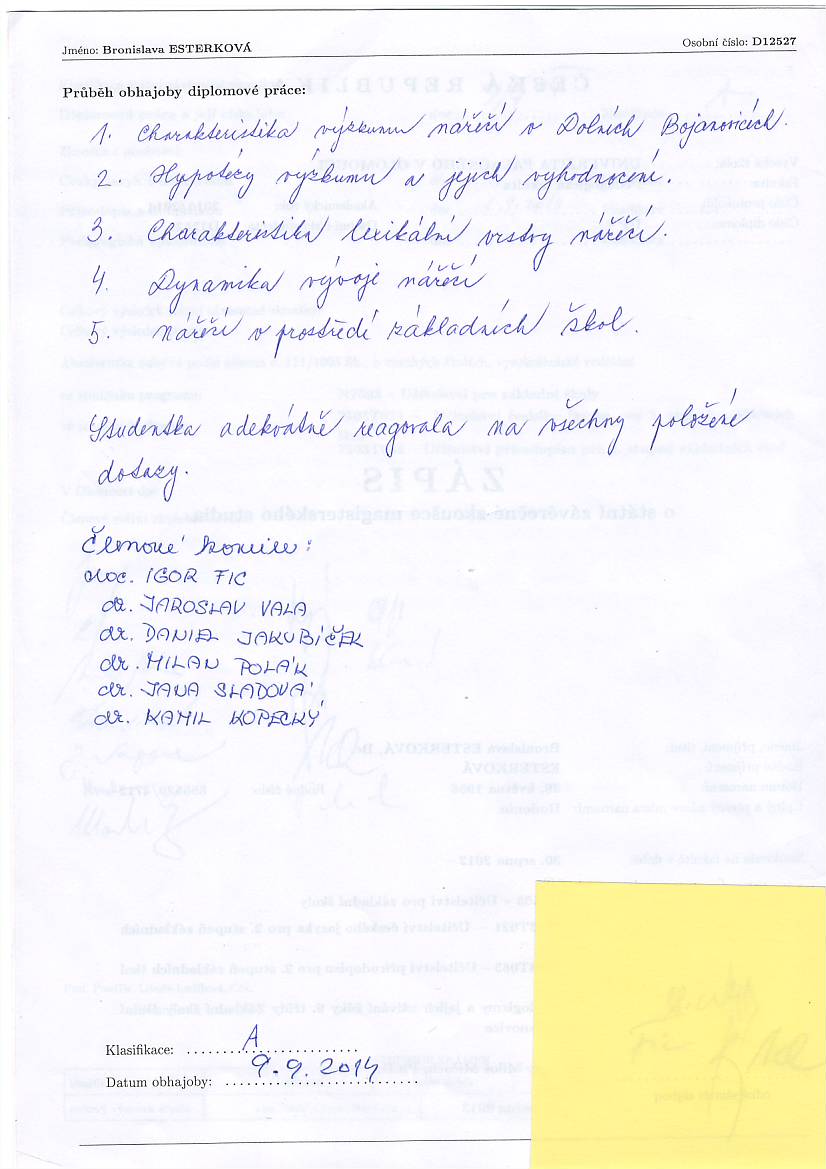 Jméno: Bronislava ESTERKOVÁ Osobní číslo: D12527
Průběh obhajoby diplomové práce:
1. Charakteristika výzkumu nářečí v Dolních Bojanovicích.
2. Hypotézy výzkumu a jejich vyhodnocení.
3. Charakteristika lexikální vrstvy nářečí.
4. Dynamika vývoje nářečí
5. Nářečí v prostředí základních škol.
Studentka adekvátně reagovala na všechny položené
dotazy.
Členové komise:
doc. IGOR FIC
dr. JAROSLAV VALA
dr. DANIEL JAKUBÍČEK
dr. MILAN POLÁK
dr. JANA SLADOVÁ
dr. KAMIL KOPECKÝ
Klasifikace: A
Datum obhajoby: 9.9.2014